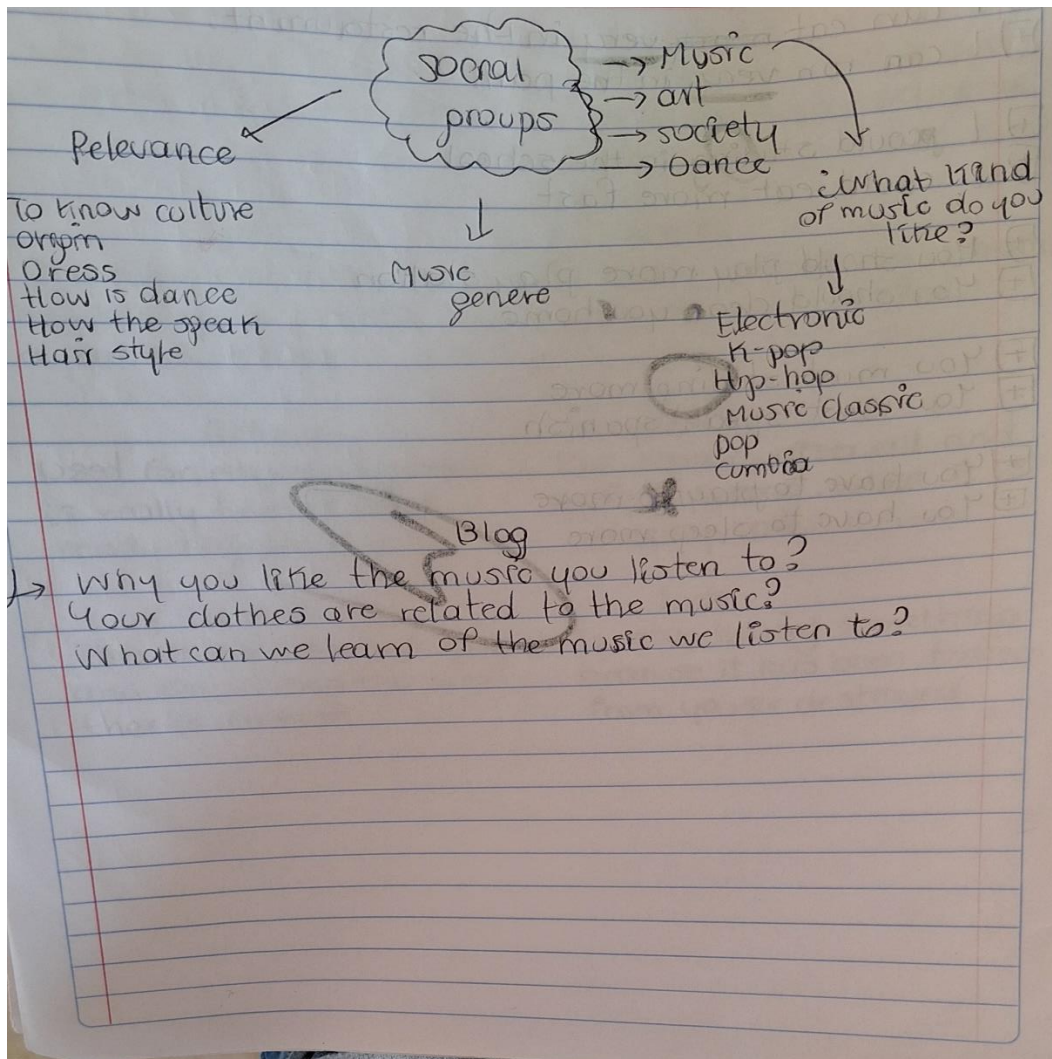 social
groups
→ Music
→ art
→ society
→ Dance
Relevance
To know culture
Origin
Dress
How is dance
How the speak
Hair style
Music
genere
¿What kind
of music do you
like?
Electronic
K-pop
Hip-hop
Music classic
pop
cumbia
Blog
Why you like the music you listen to?
Your clothes are related to the music?
What can we learn of the music we listen to?